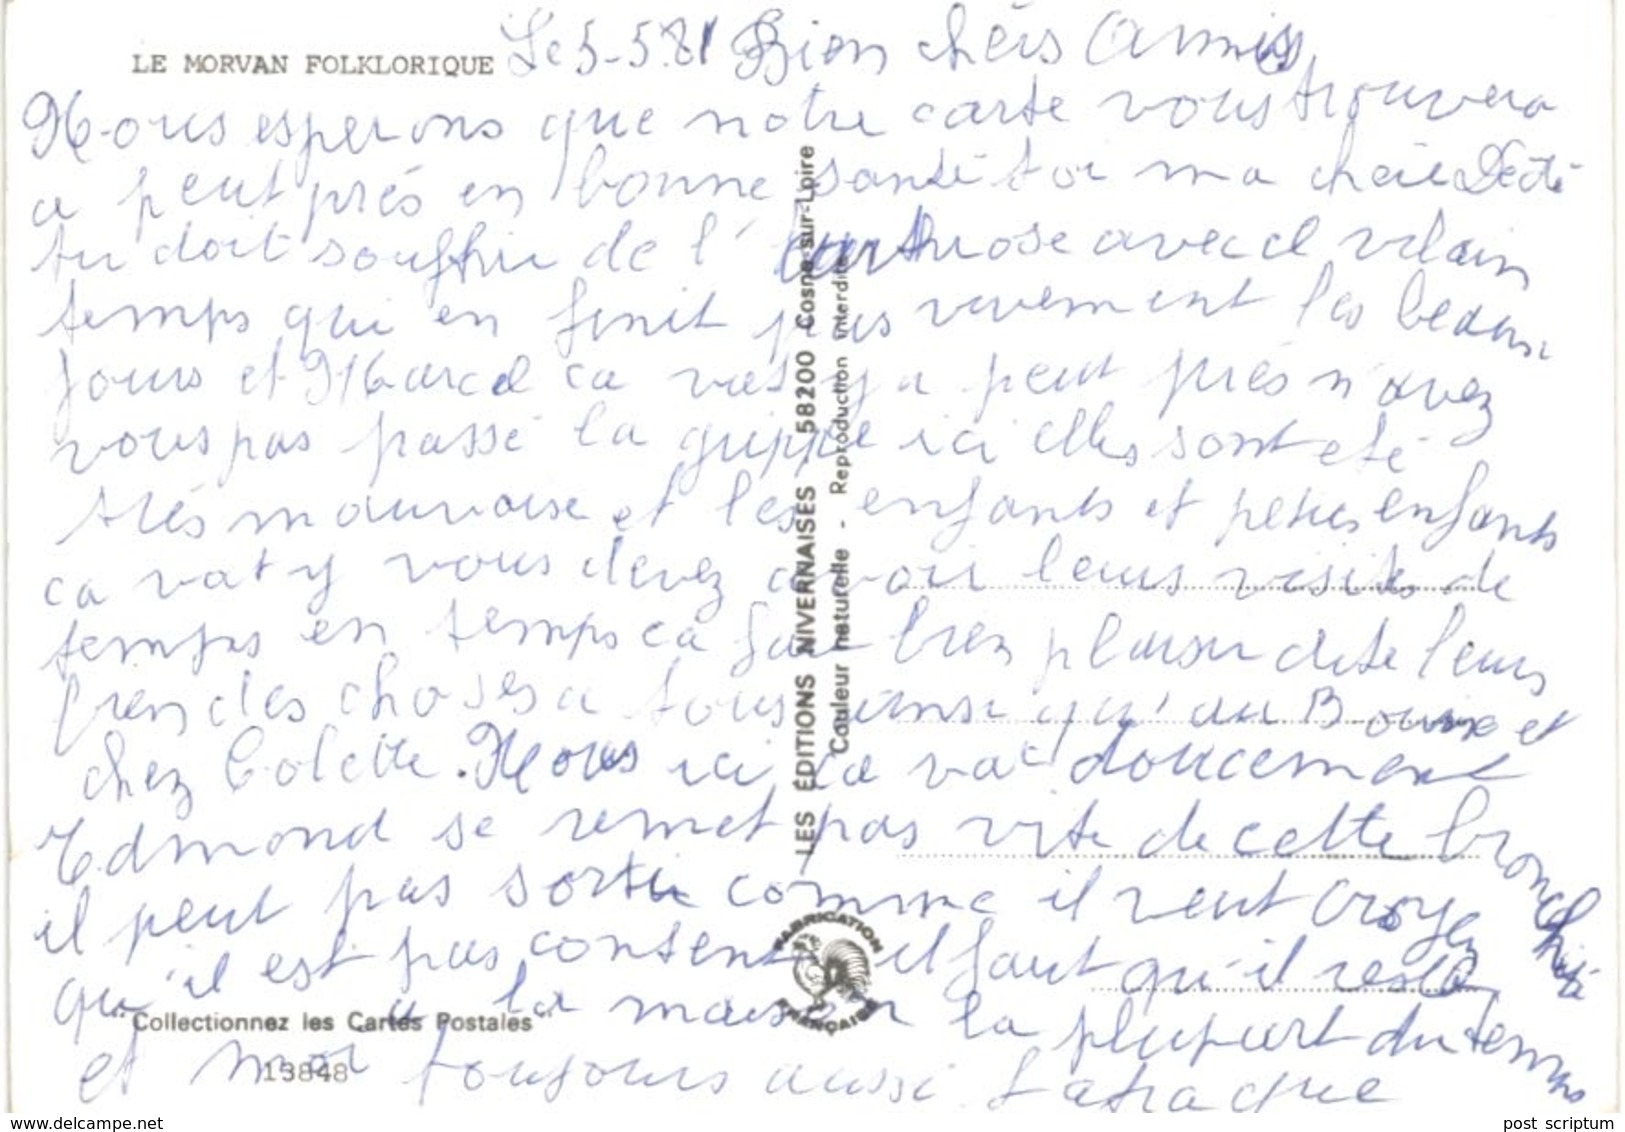 LE MORVAN FOLKLORIQUE Le 5-5.81 Bien chers Amis
Nous esperons que notre carte vous trouvera
a peut près en bonne santé toi ma chère Dédé
tu doit souffrir de l'arthrose avec cl vilain
temps qui en finit pas vivement les beaux
jours et Marcel ca vat y a peut près n'avez
vous pas passé la grippe ici elles sont eté
très mauvaise et les enfants et petits enfants
ca vat y vous devez avoir leurs visites de
temps en temps ca fai bien plaisir dite leurs
bien des choses a tous ainsi qu'au Bouix et
chez Colette. Nous ici ca va doucement
Edmond se remet pas vite de cette bronchite
il peut pas sortir comme il veut croyez
qu'il est pas content il faut qu'il reste
a la maison la plupart du temps
et moi toujours aussi tapaque
"Collectionnez les Cartes Postales"
13848
LES ÉDITIONS NIVERNAISES, 58200 Cosne-sur-Loire
Couleur naturelle - Reproduction interdite
FABRICATION FRANÇAISE
www.delcampe.net
post scriptum